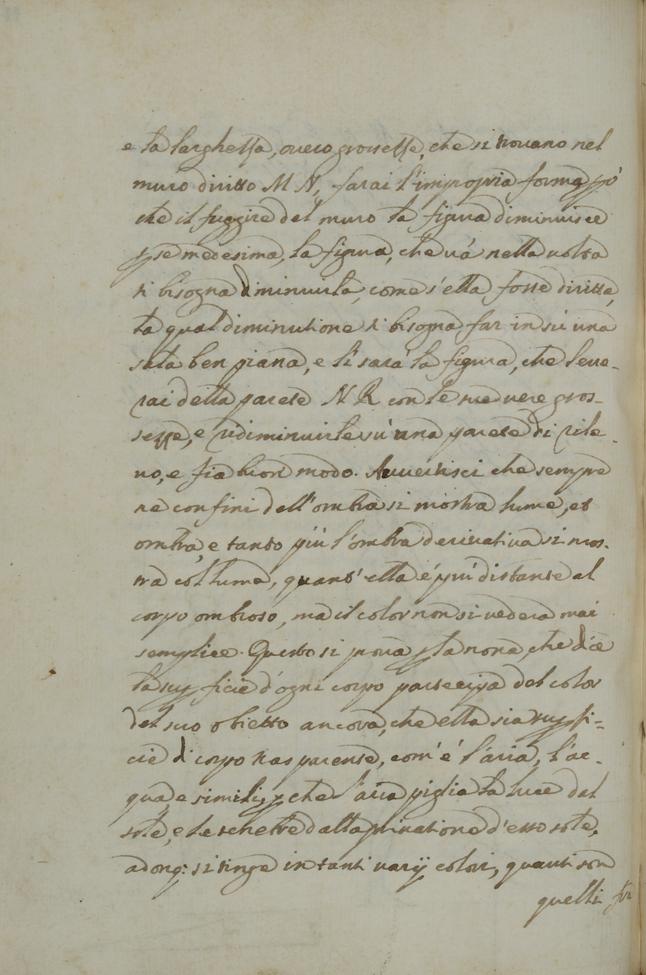 e la larghezza, overo grossezze, che si trovano nel
muro diritto M N, farai l'impropria forma, pp̊
che il fuggire del muro la figura diminuisce
p se medesima, la figura, che và nella volta
ti bisogna diminuirla, come s'ella fosse diritta,
la qual diminutione ti bisogna far in sù una
sala ben piana, e lì sarà la figura, che leve-
rai della parete N R con le sue vere gros-
sezze, e ridiminuirle sù una parete di rile-
vo, e fia buon modo. Avvertisci che sempre
ne confini dell'ombra si mostra lume, et
ombra, e tanto più l'ombra derivativa si mos-
tra col lume, quant'ella è più distante al
corpo ombroso, ma il color non si vederà mai
semplice. Questo si prova p la nona, che dice
la sup ficie d'ogni corpo partecipa del color
del suo obietto ancora, che ella sia supfi-
cie di corpo trasparente, com'è l'aria, l'ac-
qua e simili, p che l'aria piglia la luce dal
sole, e le tenebre dalla privatione d'esso sole,
adonq: si tinge in tanti varij colori, quanti son
quelli